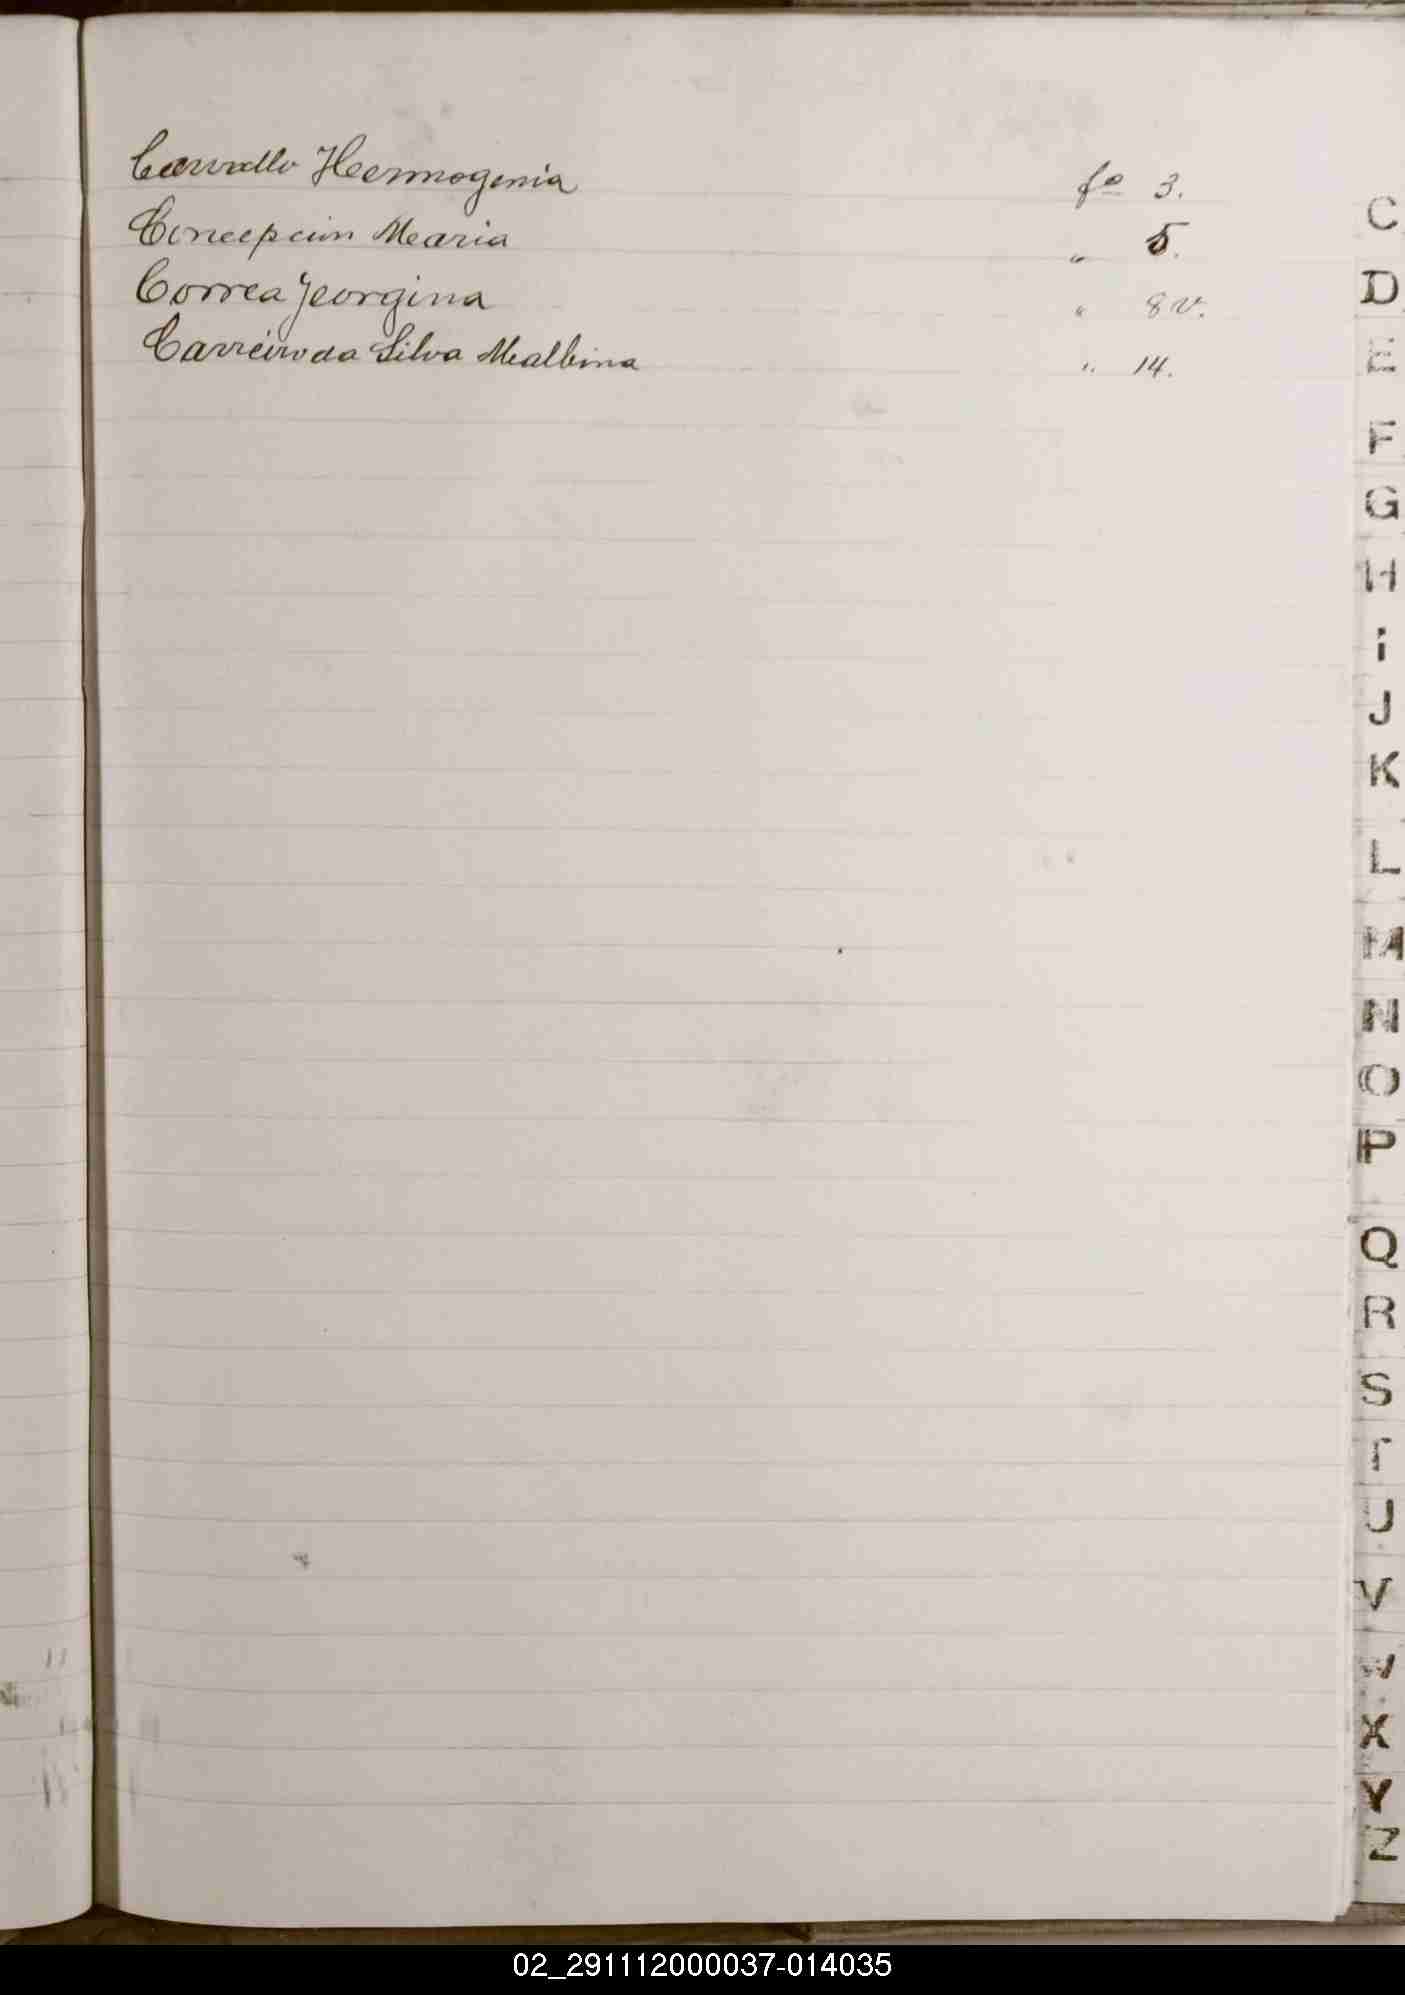 Carvallo Hermogenia fº 3.
Concepcion Maria " 5.
Correa Georgina " 8 v.
Carreiro da Silva Malbina " 14.
C
D
E
F
G
H
i
J
K
L
M
N
O
P
Q
R
S
T
U
V
W
X
Y
Z
02_291112000037-014035